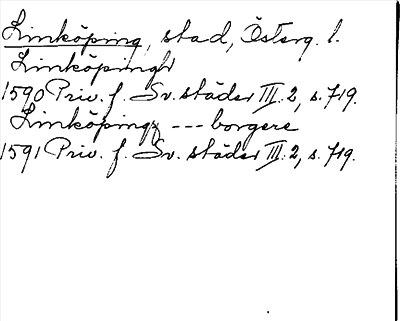 Linköping, stad, Österg. l.
Linköpingh
1590 Priv. f. Sv. städer III:2, s. 719.
Linköpingz --- borgere
1591 Priv. f. Sv. städer III:2, s. 719.